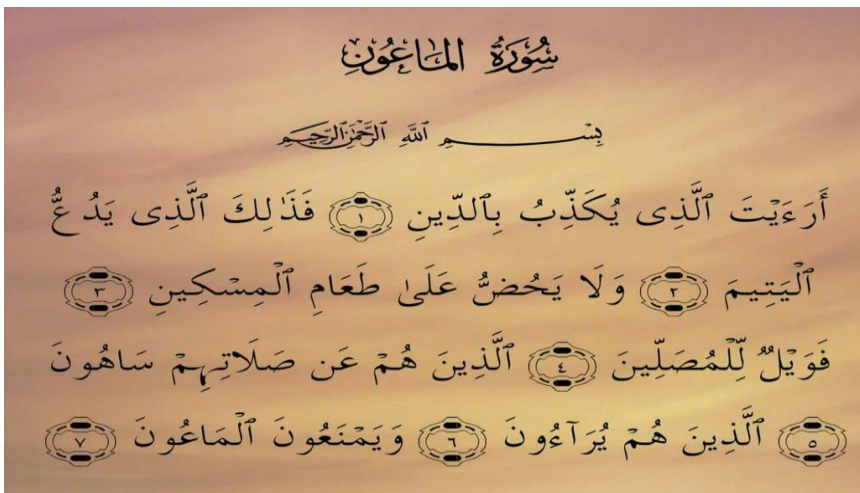 سُورَةُ المَاعُونِ
بِسْمِ ٱللَّهِ ٱلرَّحْمَٰنِ ٱلرَّحِيمِ
أَرَءَيْتَ ٱلَّذِى يُكَذِّبُ بِٱلدِّينِ ١ فَذَٰلِكَ ٱلَّذِى يَدُعُّ
ٱلْيَتِيمَ ٢ وَلَا يَحُضُّ عَلَىٰ طَعَامِ ٱلْمِسْكِينِ ٣
فَوَيْلٌ لِّلْمُصَلِّينَ ٤ ٱلَّذِينَ هُمْ عَن صَلَاتِهِمْ سَاهُونَ
٥ ٱلَّذِينَ هُمْ يُرَآءُونَ ٦ وَيَمْنَعُونَ ٱلْمَاعُونَ ٧